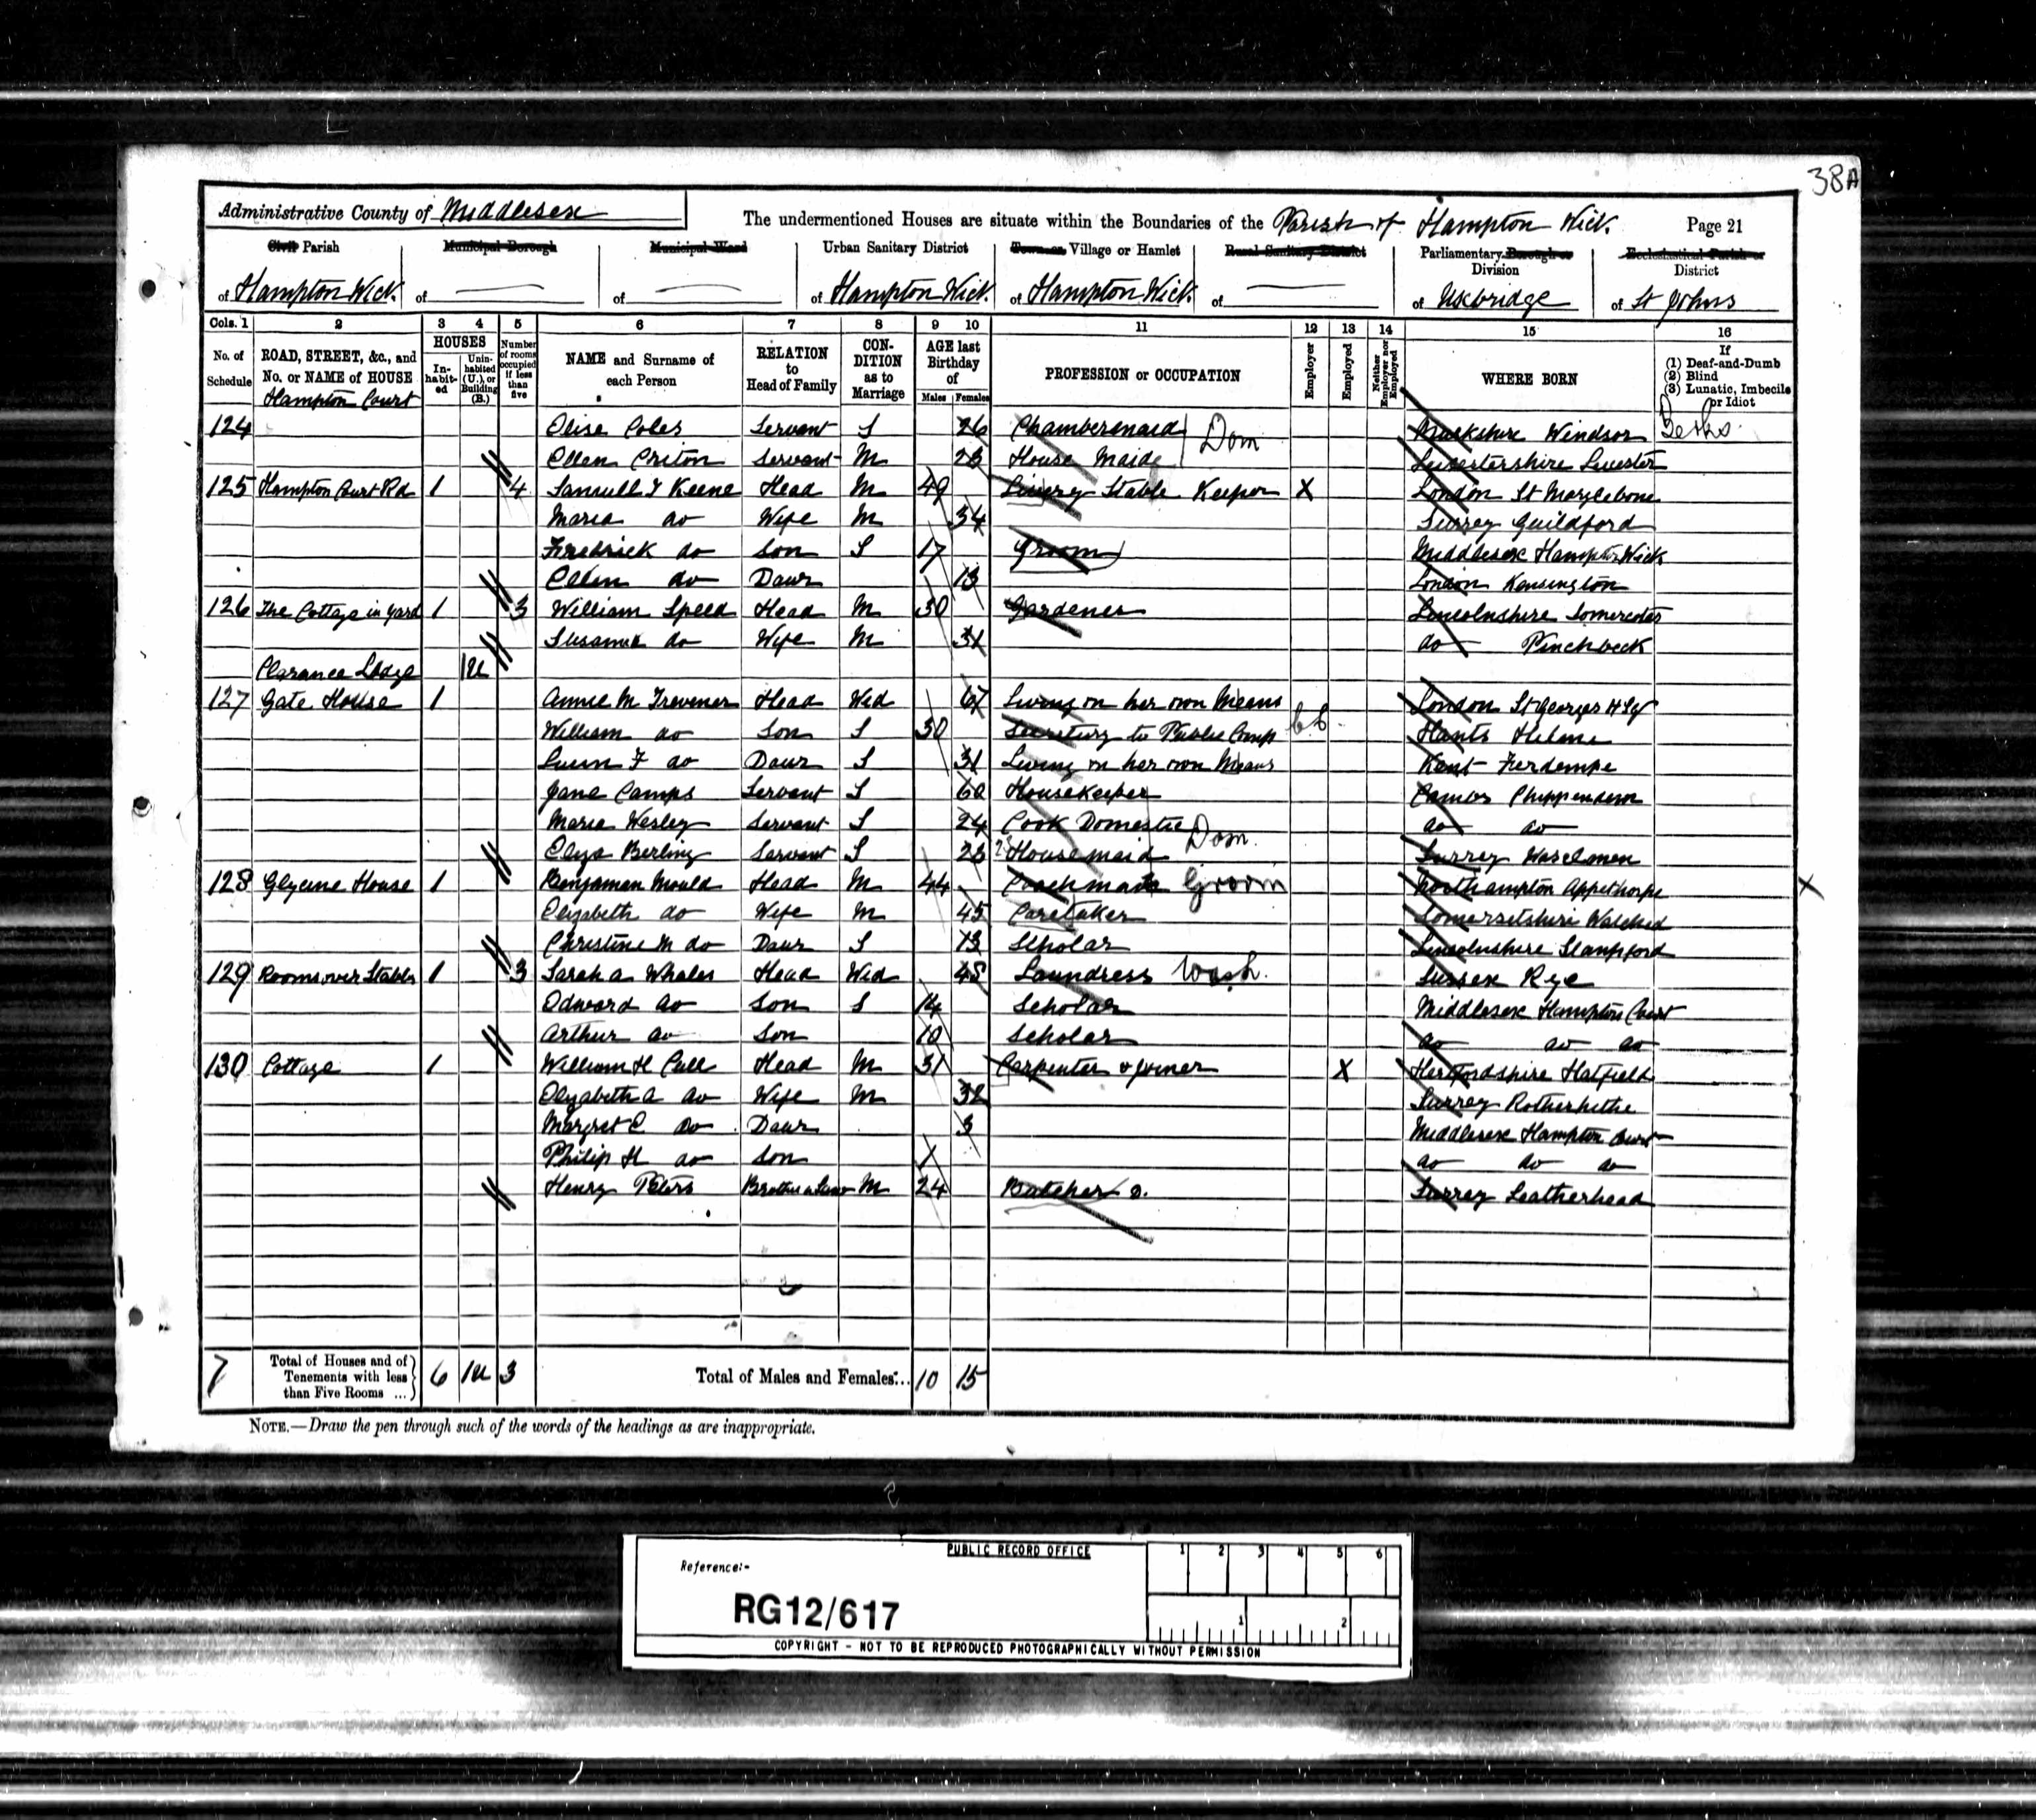 38A
Administrative County of Middlesex The undermentioned Houses are situate within the Boundaries of the Parish of Hampton Wick. Page 21
Civil Parish Municipal Borough Municipal Ward Urban Sanitary District Town or Village or Hamlet Rural Sanitary District Parliamentary Borough or Division Ecclesiastical Parish or District
of Hampton Wick. of of of Hampton Wick. of Hampton Wick. of of Uxbridge of St Johns
Cols. 1 2 3 4 5 6 7 8 9 10 11 12 13 14 15 16
No. of Schedule ROAD, STREET, &c., and No. or NAME of HOUSE HOUSES In-habit-ed Unin-habited (U.), or Building (B.) Number of rooms occupied if less than five NAME and Surname of each Person RELATION to Head of Family CON-DITION as to Marriage AGE last Birthday of Males Females PROFESSION or OCCUPATION Employer Employed Neither Employer nor Employed WHERE BORN If (1) Deaf-and-Dumb (2) Blind (3) Lunatic, Imbecile or Idiot
Hampton Court
124 Elise Coles Servant S 26 Chambermaid Dom Windsor Berks.
Ellen Servant M 23 House Maid Leicestershire Leicester
125 Hampton Court Rd 1 4 Samuell T Keene Head M 49 Livery Stable Keeper X London St Marylebone
Maria do Wife M 34 Surrey Guildford
Fredrick do Son S 17 Groom Middlesex Hampton Wick
Ellen do Daur 13 London Kensington
126 The Cottage in Yard 1 3 William Speed Head M 30 Gardener Lincolnshire
Susanna do Wife M 31 do Pinchbeck
Clarance Lodge 1u
127 Gate House 1 Annie M Trevener Head Wid 67 Living on her own Means London St Georges H Sq
William do Son S 30 Secretary to Public Comp Hants
F do Daur S 31 Living on her own Means Kent
Jane Camps Servant S 60 Housekeeper Cambs
Maria Wesley Servant S 24 Cook Domestic Dom. do do
Eliza Berling Servant S 23 Housemaid Surrey
128 Glycine House 1 Benjaman Mould Head M 44 Coachman Groom Northampton Appethorpe X
Elizabeth do Wife M 45 Caretaker Somersetshire Watched
Christine M do Daur S 13 Scholar Lincolnshire Stampford
129 Rooms over Stables 1 3 Sarah A Whales Head Wid 48 Laundress Wash. Sussex Rye
Edward do Son S 14 Scholar Middlesex Hampton Court
Arthur do Son 10 Scholar do do do
130 Cottage 1 William H Cull Head M 31 Carpenter & Joiner X Hertfordshire Hatfield
Elizabeth A do Wife M 32 Surrey Rotherhithe
Margret E do Daur 3 Middlesex Hampton Court
Philip H do Son 1 do do do
Henry Peters Brother in Law M 24 Butcher Surrey Leatherhead
7 Total of Houses and of Tenements with less than Five Rooms ... 6 1u 3 Total of Males and Females... 10 15
NOTE.—Draw the pen through such of the words of the headings as are inappropriate.
PUBLIC RECORD OFFICE
Reference:-
RG12/617
1 2 3 4 5 6
1 2
COPYRIGHT - NOT TO BE REPRODUCED PHOTOGRAPHICALLY WITHOUT PERMISSION